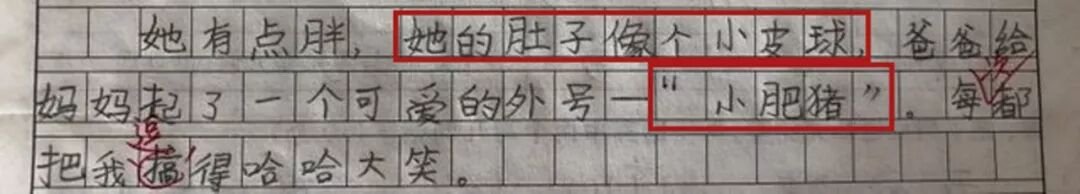 她有点胖，她的肚子像个小皮球，爸爸给
妈妈起了一个可爱的外号—“小肥猪”。每都
把我搞得哈哈大笑。
逗